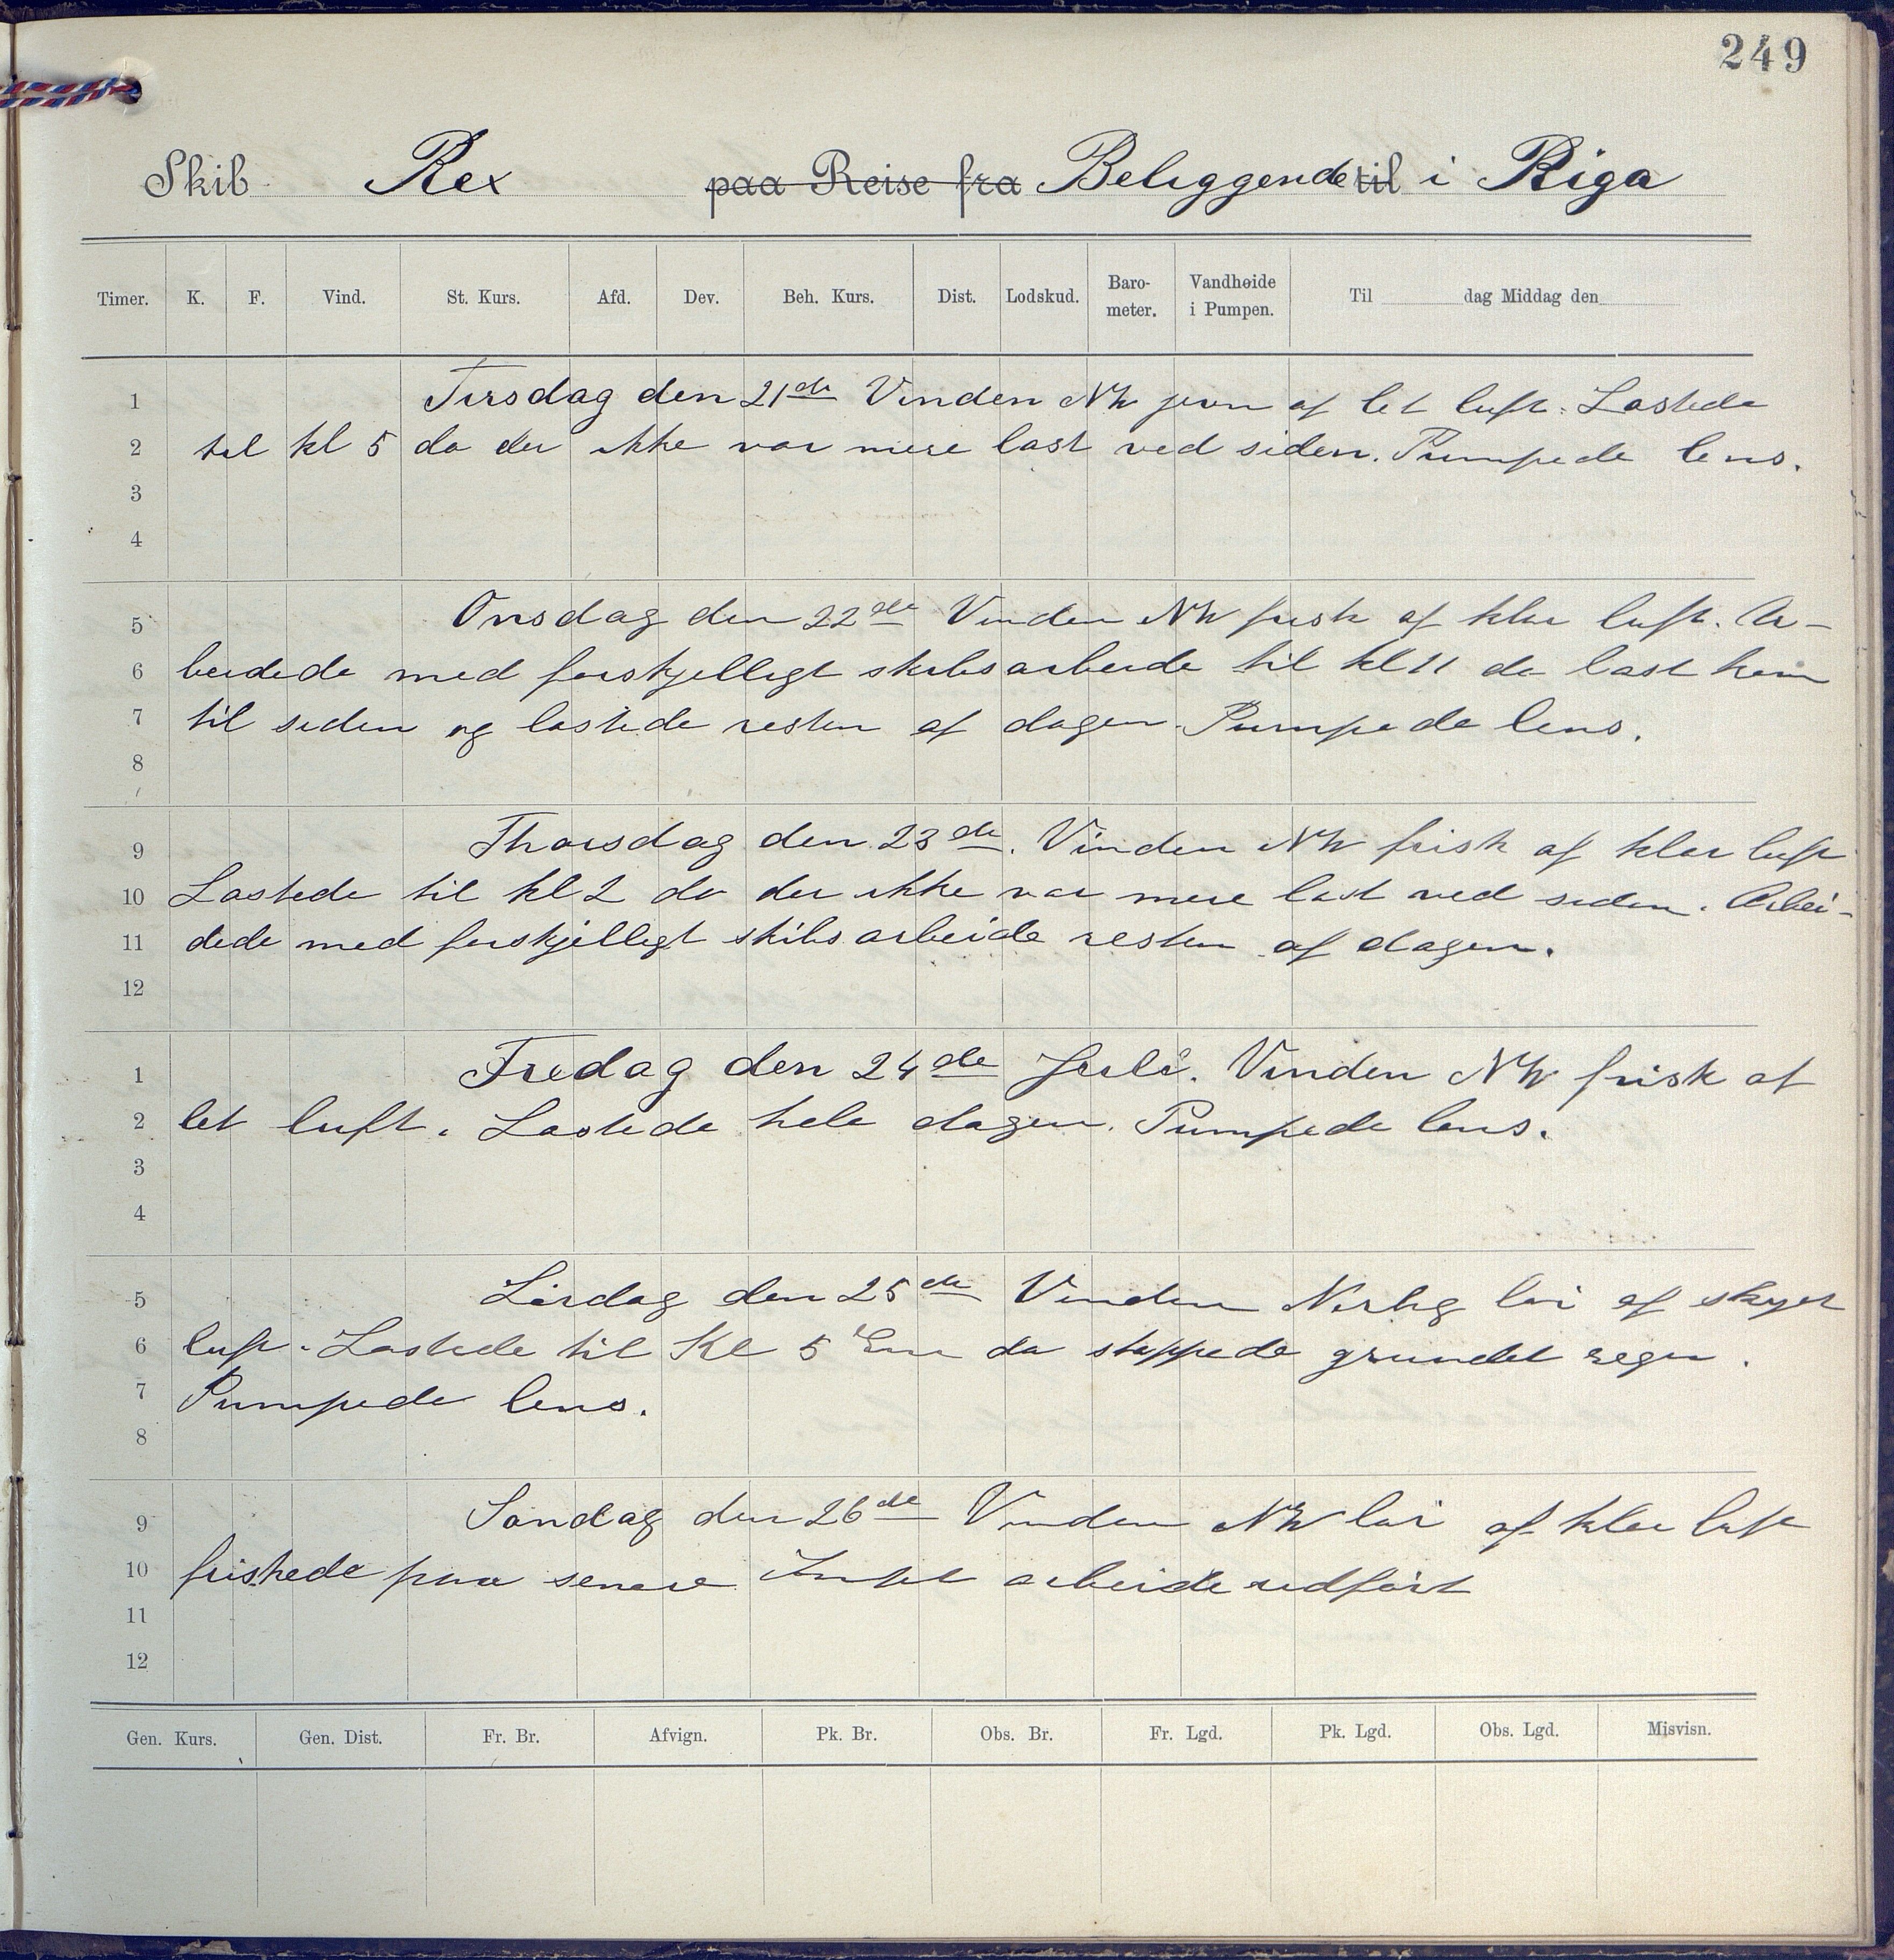 249
Skib Rex paa Reise fra Beliggende til i Riga
Timer. K. F. Vind. St. Kurs. Afd. Dev. Beh. Kurs. Dist. Lodskud. Baro-meter. Vandhøide i Pumpen. Til dag Middag den
1 Tirsdag den 21de Vinden NW jevn af let luft. Lastede
2 til kl 5 da der ikke var mere last ved siden. Pumpede lens.
3
4
5 Onsdag den 22de Vinden NW frisk af klar luft. Ar-
6 beidede med forskjelligt skibsarbeide til kl 11 da last kom
7 til siden og lastede resten af dagen. Pumpede lens.
8
9 Thorsdag den 23de. Vinden NW frisk af klar luft
10 Lastede til kl 2 da der ikke var mere last ved siden. Arbei-
11 dede med forskjelligt skibsarbeide resten af dagen.
12
1 Fredag den 24de Juli. Vinden NW frisk af
2 let luft. Lastede hele dagen. Pumpede lens.
3
4
5 Lørdag den 25de Vinden Nerlig løi af skyet
6 luft. Lastede til Kl 5 Em da stoppede grundet regn.
7 Pumpede lens.
8
9 Søndag den 26de Vinden NW løi af klar luft
10 friskede paa senere Intet arbeide udført
11
12
Gen. Kurs. Gen. Dist. Fr. Br. Afvign. Pk. Br. Obs. Br. Fr. Lgd. Pk. Lgd. Obs. Lgd. Misvisn.